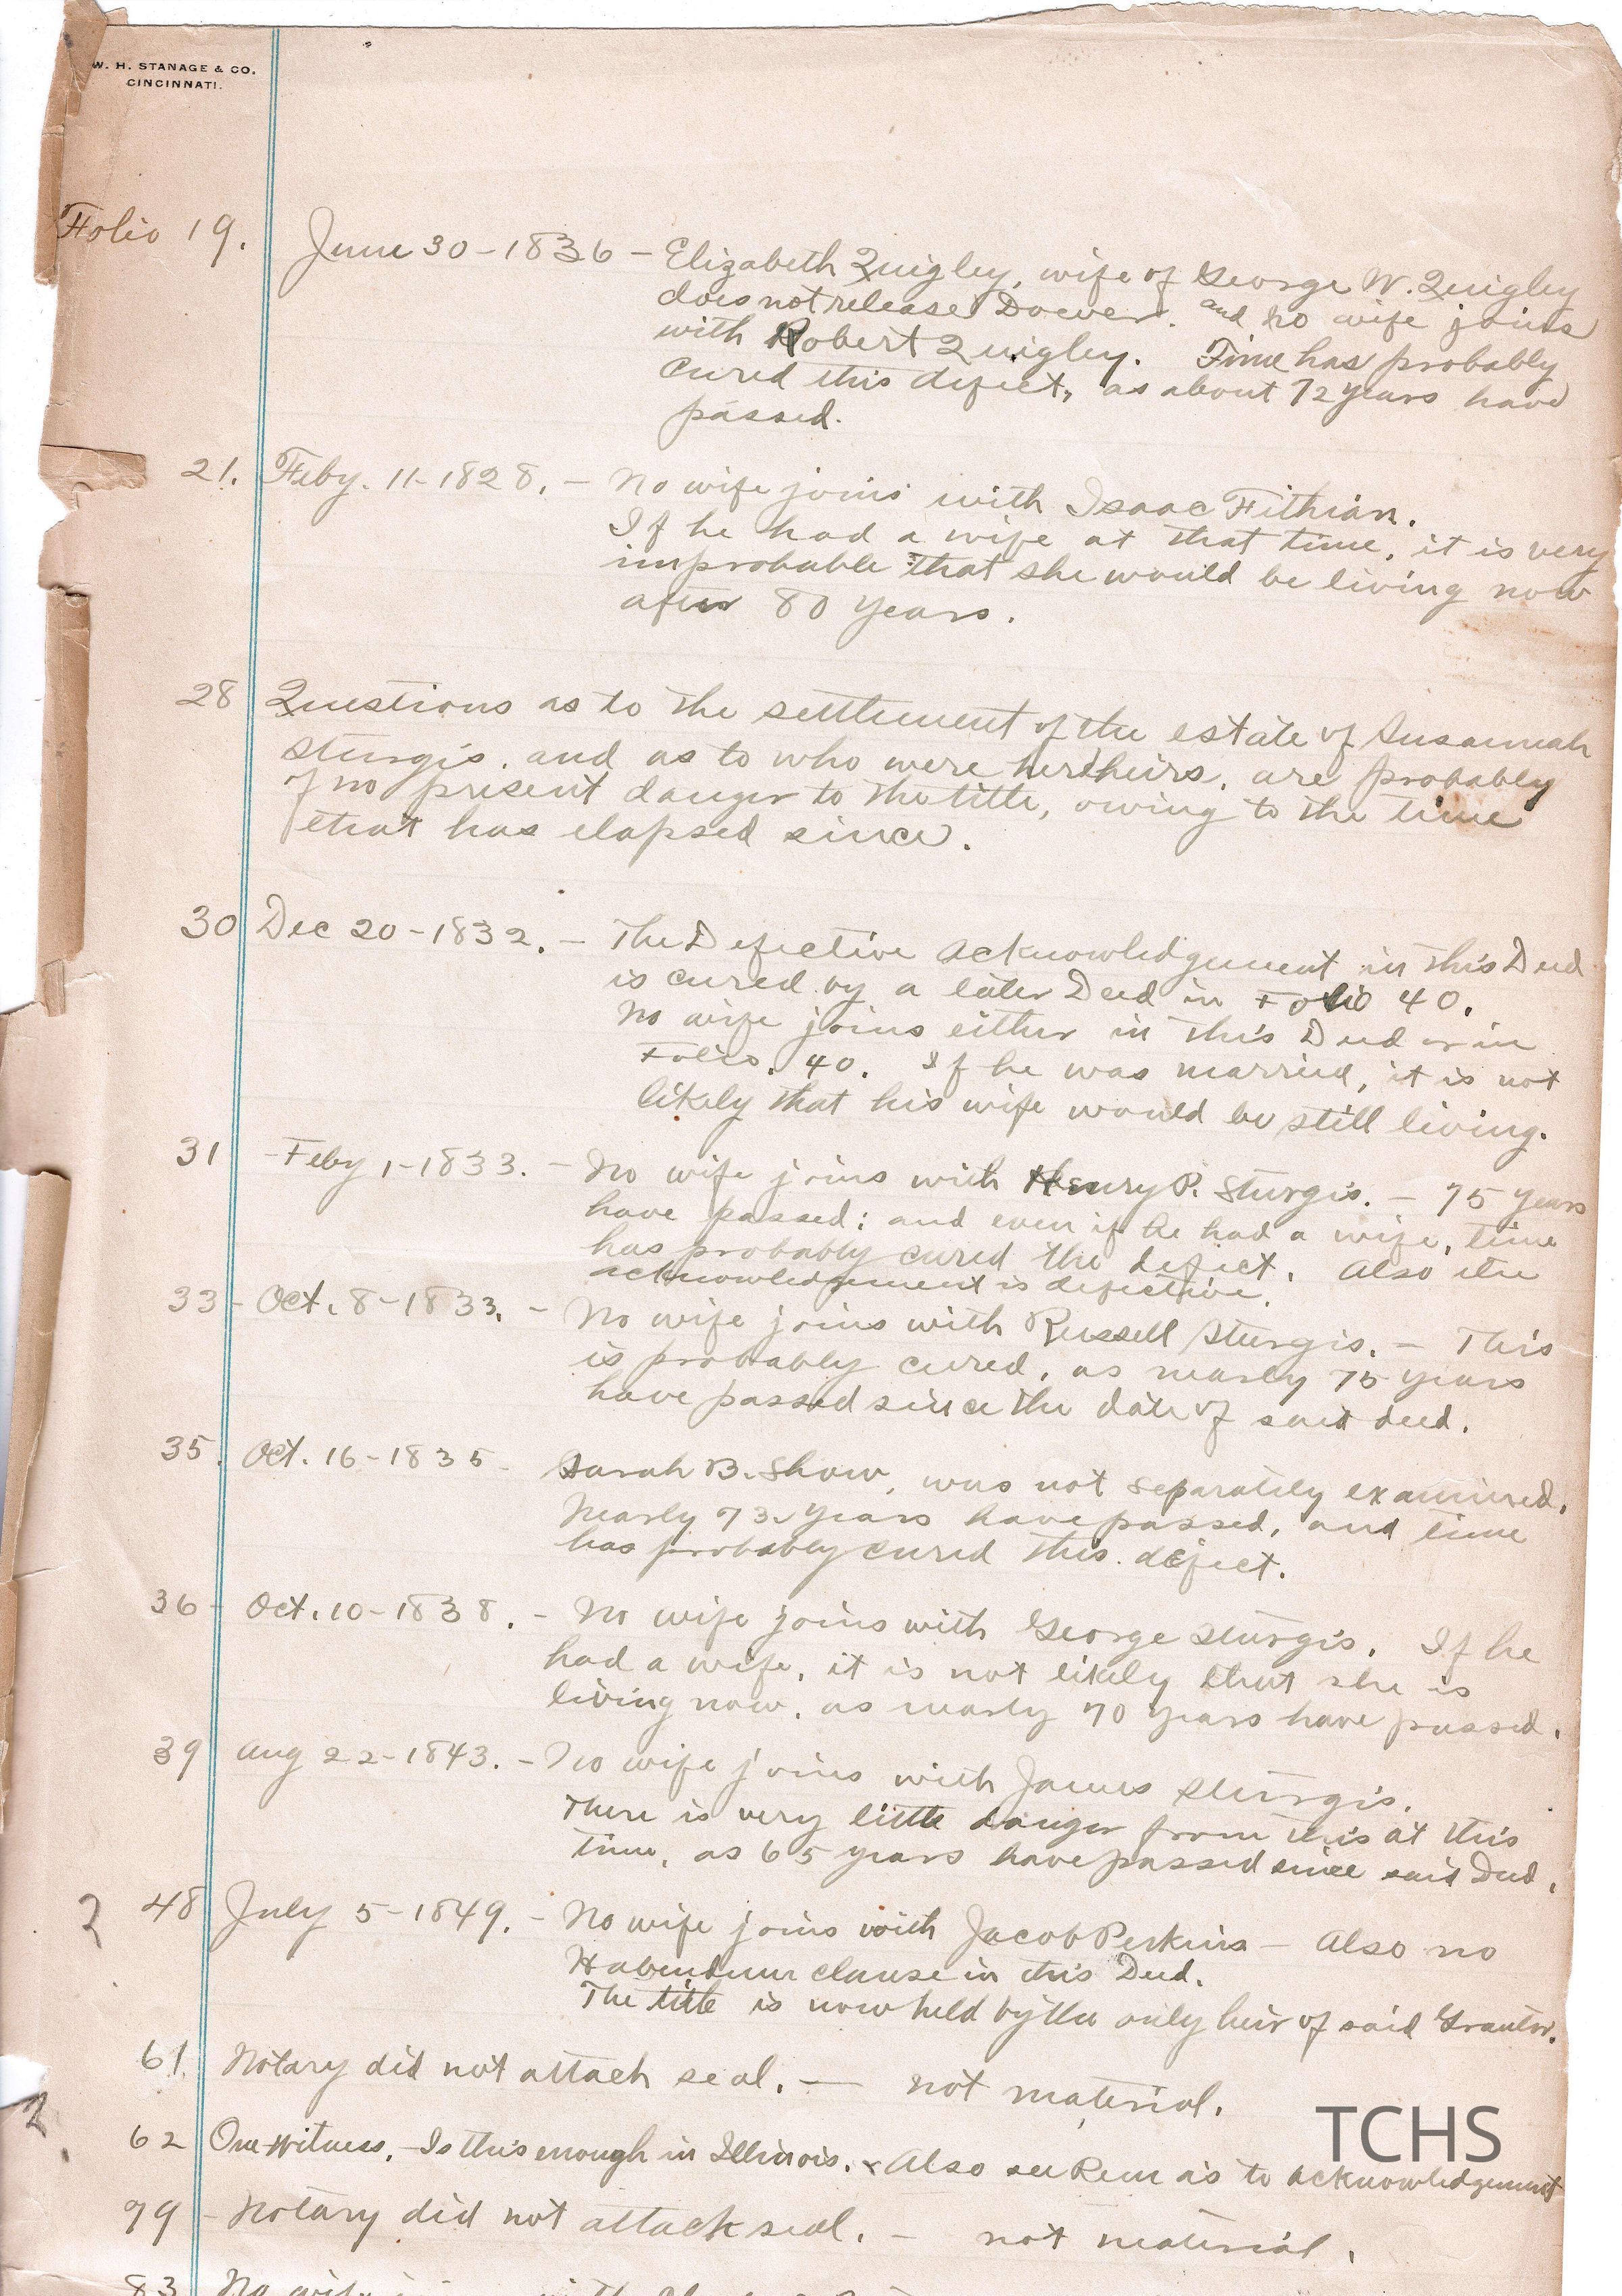 W. H. STANAGE & CO.
CINCINNATI.
Folio 19. June 30-1836 - Elizabeth Quigley, wife of George W. Quigley
does not release Dower. and no wife joins
with Robert Quigley. Time has probably
cured this defect, as about 72 years have
passed.
21. Feby. 11-1828. - No wife joins with Isaac Fithian.
If he had a wife at that time, it is very
improbable that she would be living now
after 80 years.
28 Questions as to the settlement of the estate of Susannah
Sturgis, and as to who were her heirs, are probably
of no present danger to the title, owing to the time
that has elapsed since.
30 Dec 20-1832. - The Defective acknowledgement in this Deed
is cured by a later Deed in Folio 40.
No wife joins either in this Deed or in
Folio. 40. If he was married, it is not
likely that his wife would be still living.
31 - Feby 1-1833. - No wife joins with Henry P. Sturgis. - 75 years
have passed; and even if he had a wife, time
has probably cured the defect. Also the
acknowledgement is defective.
33 - Oct. 8-1833. - No wife joins with Russell Sturgis. - This
is probably cured, as nearly 75 years
have passed since the date of said deed.
35. Oct. 16-1835 - Sarah B. Shaw, was not separately examined.
Nearly 73 years have passed, and time
has probably cured this defect.
36 - Oct. 10-1838. - No wife joins with George Sturgis. If he
had a wife, it is not likely that she is
living now, as nearly 70 years have passed.
39 Aug 22-1843. - No wife joins with James Sturgis.
There is very little danger from this at this
time, as 65 years have passed since said Deed.
2 48 July 5-1849. - No wife joins with Jacob Perkins - Also no
Habendum clause in this Deed.
The title is now held by the only heir of said Grantor.
61. Notary did not attach seal. - not material.
2. 62 One witness. - Is this enough in Illinois. x Also see Rem as to acknowledgement
79 - Notary did not attach seal. - not material.
83 No wife joins with
TCHS